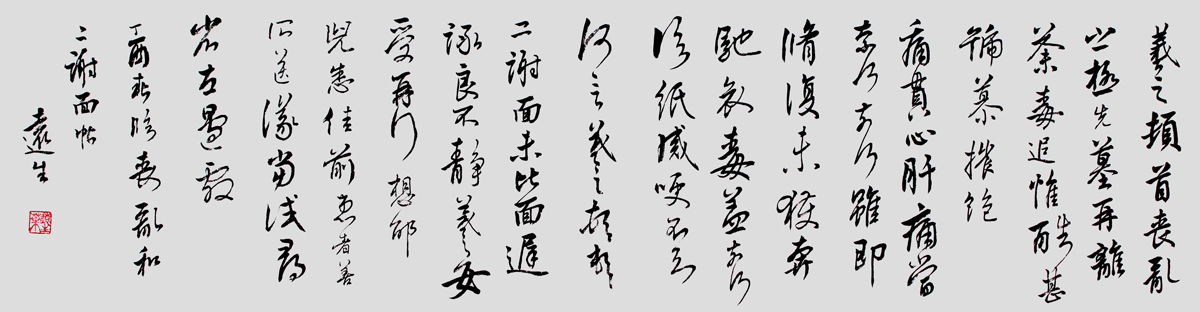 羲之頓首喪亂
之極先墓再離
荼毒追惟酷甚
號慕摧絕
痛貫心肝痛當
奈何奈何雖即
脩復未獲奔
馳哀毒益深奈何
臨紙感哽不知
何言羲之頓首頓首
二謝面未比面遲
詠良不靜羲之女
愛再行想邰
兒悉佳前患者善
所送議當試尋
左邊劇
丁酉秋臨喪亂和
二謝面帖
遠生